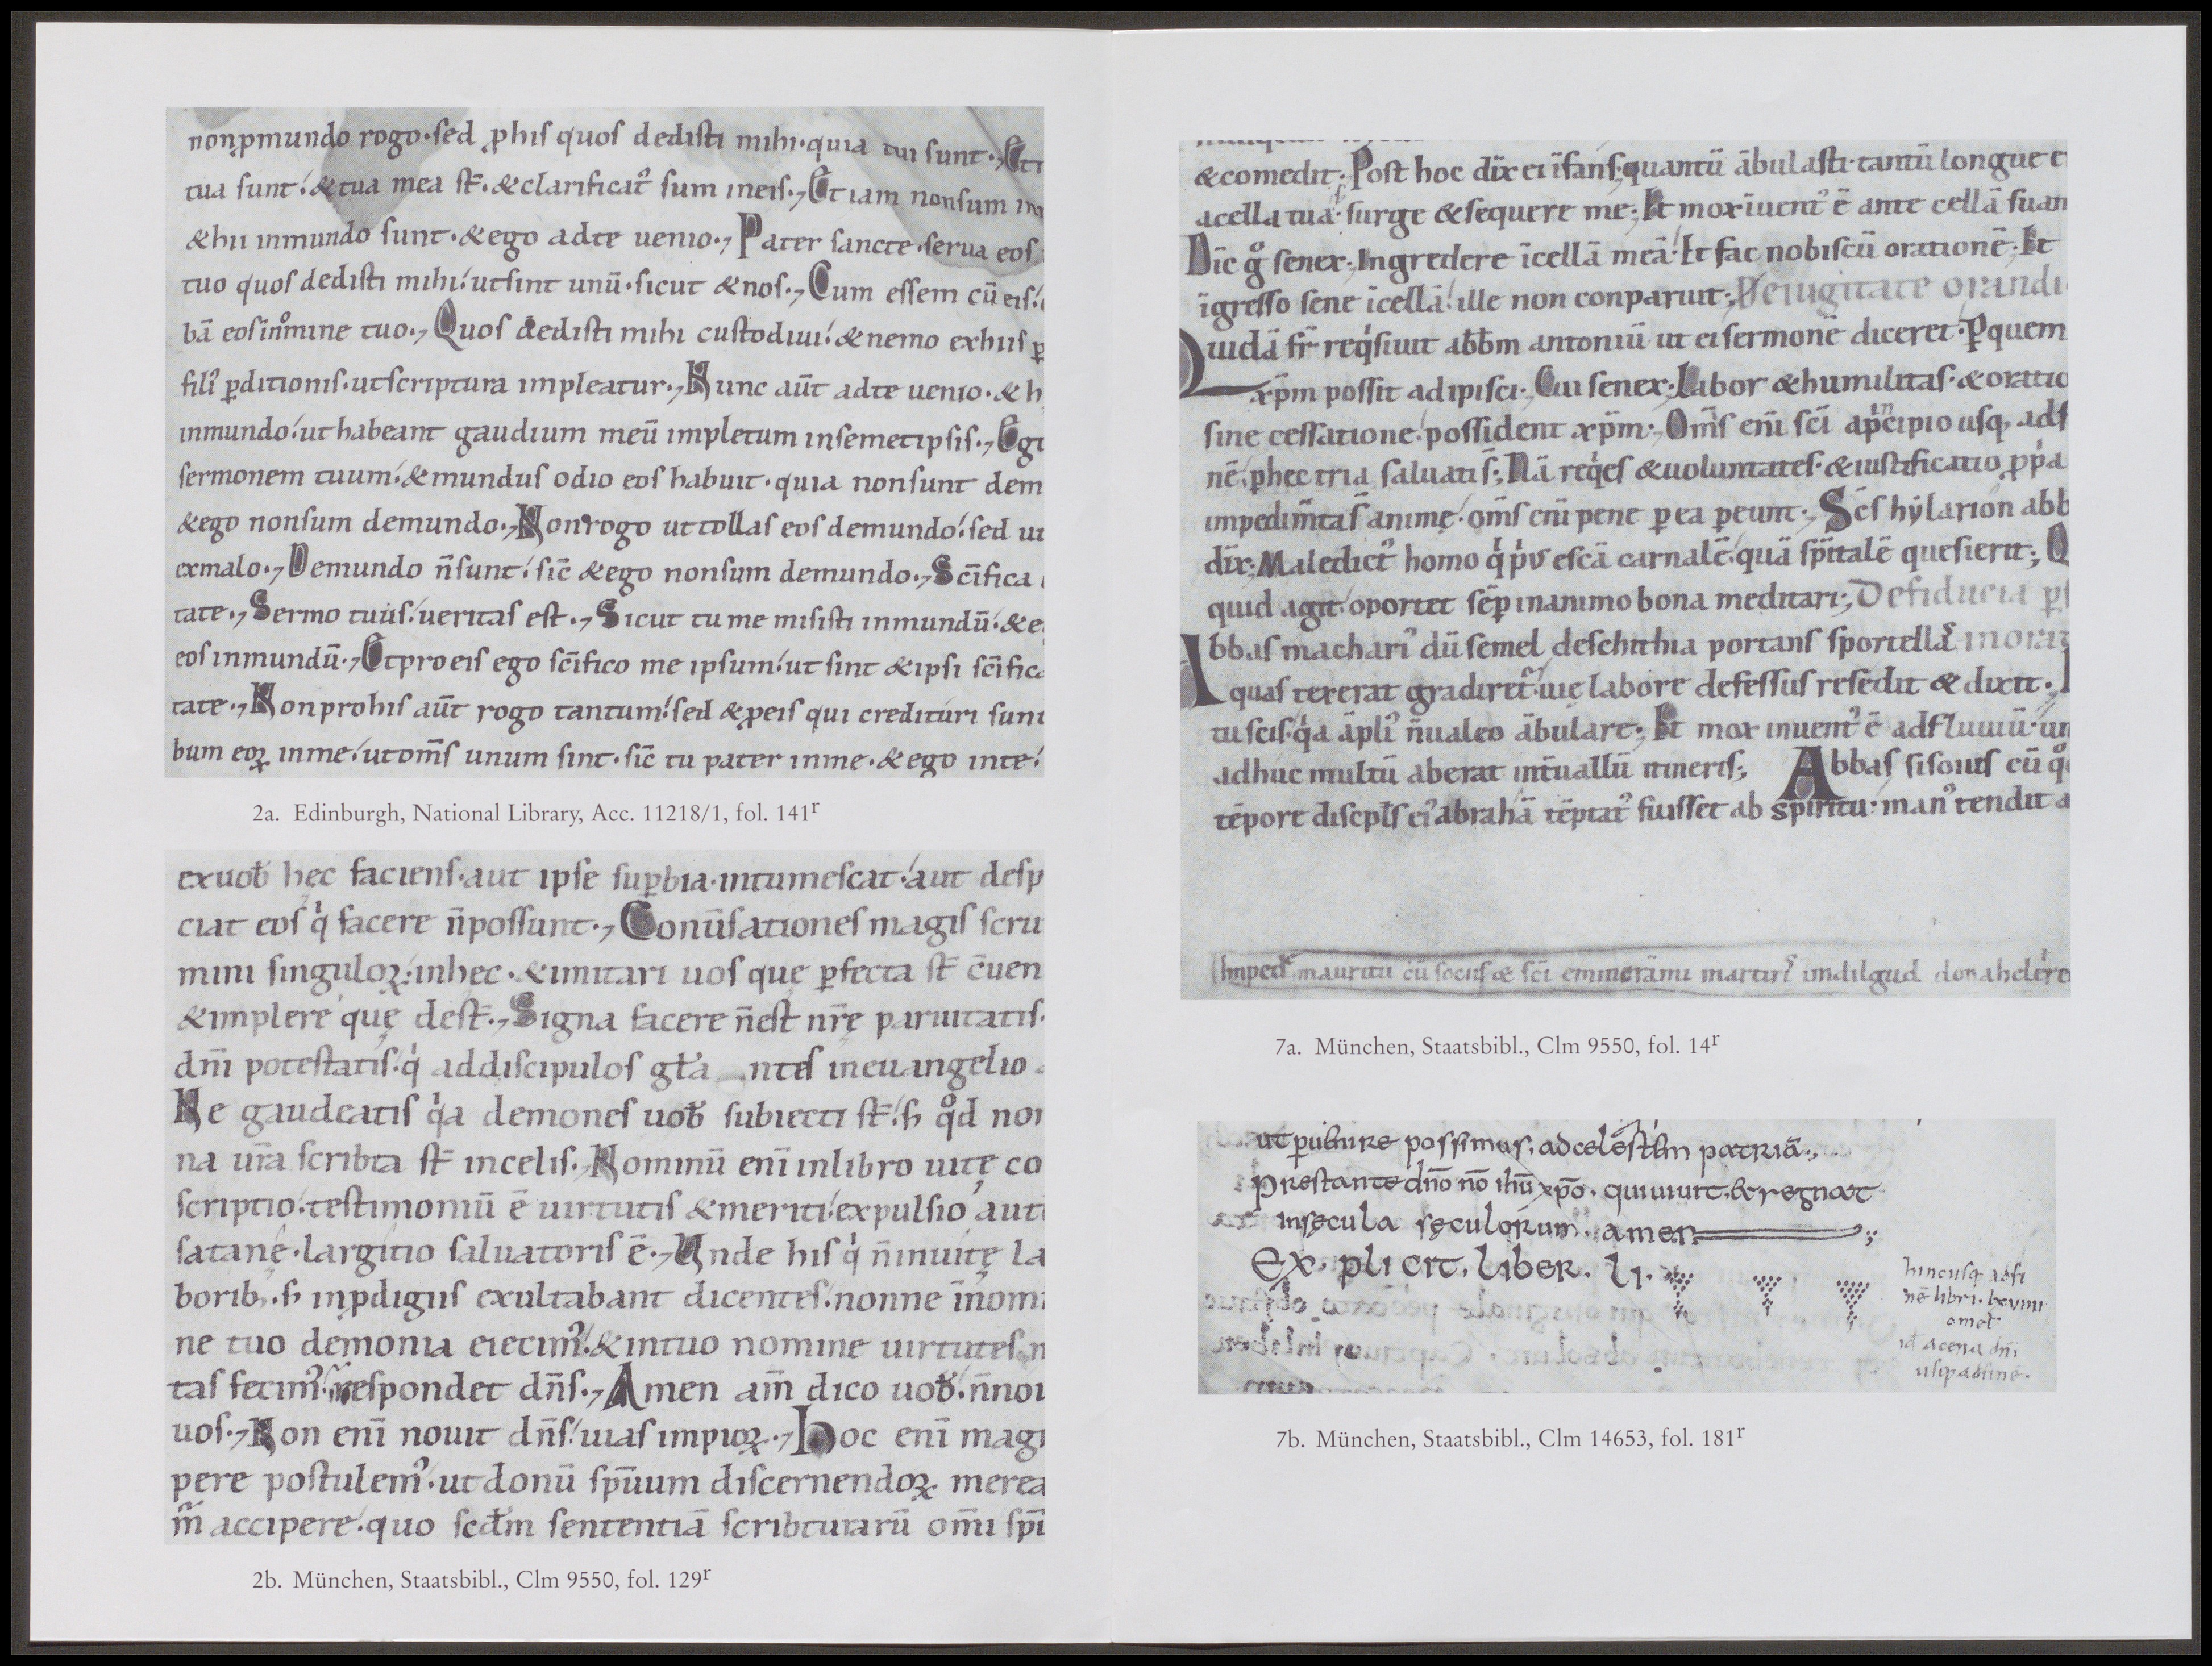 non ꝓmundo rogo· sed ꝓhis quos dedisti mihi· quia tui sunt·, Et
tua sunt· &tua mea st̄· &clarificatꝰ sum ineis·, Et iam nonsum
&hii inmundo sunt· &ego adte uenio·, Pater sancte· serua eos
tuo quos dedisti mihi· utsint unū· sicut &nos·, Cum essem cū eis·
bā eos innomine tuo·, Quos dedisti mihi custodiui· &nemo exhiis
filiꝰ ꝑditionis· utscriptura impleatur·, Nunc aūt adte uenio· & h
inmundo· ut habeant gaudium meū impletum insemetipsis·, Ego
sermonem tuum· &mundus odio eos habuit· quia nonsunt dem
&ego nonsum demundo·, Non rogo ut tollas eos demundo· sed ut
exmalo·, Demundo n̄sunt· sic̄ &ego nonsum demundo·, Scīfica
tate·, Sermo tuus· ueritas est·, Sicut tu me misisti inmundū· &e
eos inmundū·, Et pro eis ego scīfico me ipsum· ut sint &ipsi scīfica
tate·, Non prohis aūt rogo tantum· sed &ꝓeis qui credituri sunt
bum eoꝝ inme· ut om̄s unum sint· sic̄ tu pater inme· &ego inte·
2a. Edinburgh, National Library, Acc. 11218/1, fol. 141r
exuob̄ hęc faciens· aut ipse suꝑbia· intumescat· aut desp
ciat eos qi facere n̄possunt·, Conūsationes magis scru
mini singuloꝝ· inhec· &imitari uos quę ꝑfecta st̄ c̄uen
&implere quę dest̄·, Signa facere n̄est nr̄ę paruitatis·
dn̄i potestatis· qi addiscipulos gła ntes ineuangelio
Ne gaudeatis qia demones uob̄ subiecti st̄· ẜ qod non
na ur̄a scribta st̄ incelis·, Nominū enī inlibro uitę co
scriptio· testimoniū ē uirtutis &meriti· expulsio aut
satanę· largitio saluatoris ē·, Unde his qi n̄inuitę la
borib,· ẜ inꝓdigiis exultabant dicentes· nonne īnomi
ne tuo demonia eiecimꝰ· &intuo nomine uirtutes
tas fecimꝰ· respondet dn̄s·, Amen am̄ dico uob̄· n̄noui
uos·, Non enī nouit dn̄s· uias impioꝝ·, Hoc enī magn
pere postulemꝰ· ut donū sp̄uum discernendoꝝ merea
m̄ accipere· quo scd̄m sententiā scribturarū om̄i sp̄i
2b. München, Staatsbibl., Clm 9550, fol. 129r
&comedit·, Post hoc dix̄ ei īfans· quantū ābulasti· tantū longue e
acella tua· surge &sequere me; Et mox īuentꝰ ē ante cellā suam
Dīc go senex·, Ingredere īcellā meā· Et fac nobiscū orationē·, Et
īgresso sene īcellā· ille non conparuit·, De iugitate orandi
Quidā fr̄ reqisiuit abb̄m antoniū ut ei sermonē diceret· Pquem
xp̄m possit adipisci·, Cui senex· Labor &humilitas· &oratio
sine cessatione· possident xp̄m·, Om̄s enī scī apincipio usq, adf
nē· ꝑhec tria saluatis̄; Nā reqies &uoluntates· &iustificatio ꝓp̄a
impedim̄tas̄ animę· om̄s enī pene ꝑ ea ꝑeunt·, Sc̄s hylarion abb
dix̄· Maledictꝰ homo qi piu escā carnalē· quā sp̄italē quesierit; Q
quid agit· oportet sēꝑ inanimo bona meditari·, De fiducia
Abbas machariꝰ dū semel deschithia portans sportellas morat
quas texerat gradiret· uię labore defessus resedit & dixit·
tu scis· qia āpliꝰ n̄ualeo ābulare; Et mox inuentꝰ ē adfluuiū· un
adhuc multū aberat int̄uallū itineris; Abbas sisouis cū qo
tēpore discpłs eiꝰ abrahā tēptatꝰ fuisset ab spiritu· manꝰ tendit a
mauritii cū sociis & scī emmerāmi martirꝰ imdilgud
7a. München, Staatsbibl., Clm 9550, fol. 14r
ut ꝑuenire possimus. ad celestem patriā.,
prestante dn̄o nō ihū xp̄o. qui uiuit. & regnat
insęcula sęculorum. amen
Ex. pli cit. Liber. Li.
hincusq adfi
nē libri. lxviiii
omet
id acena dn̄i
usq adfinē.
7b. München, Staatsbibl., Clm 14653, fol. 181r